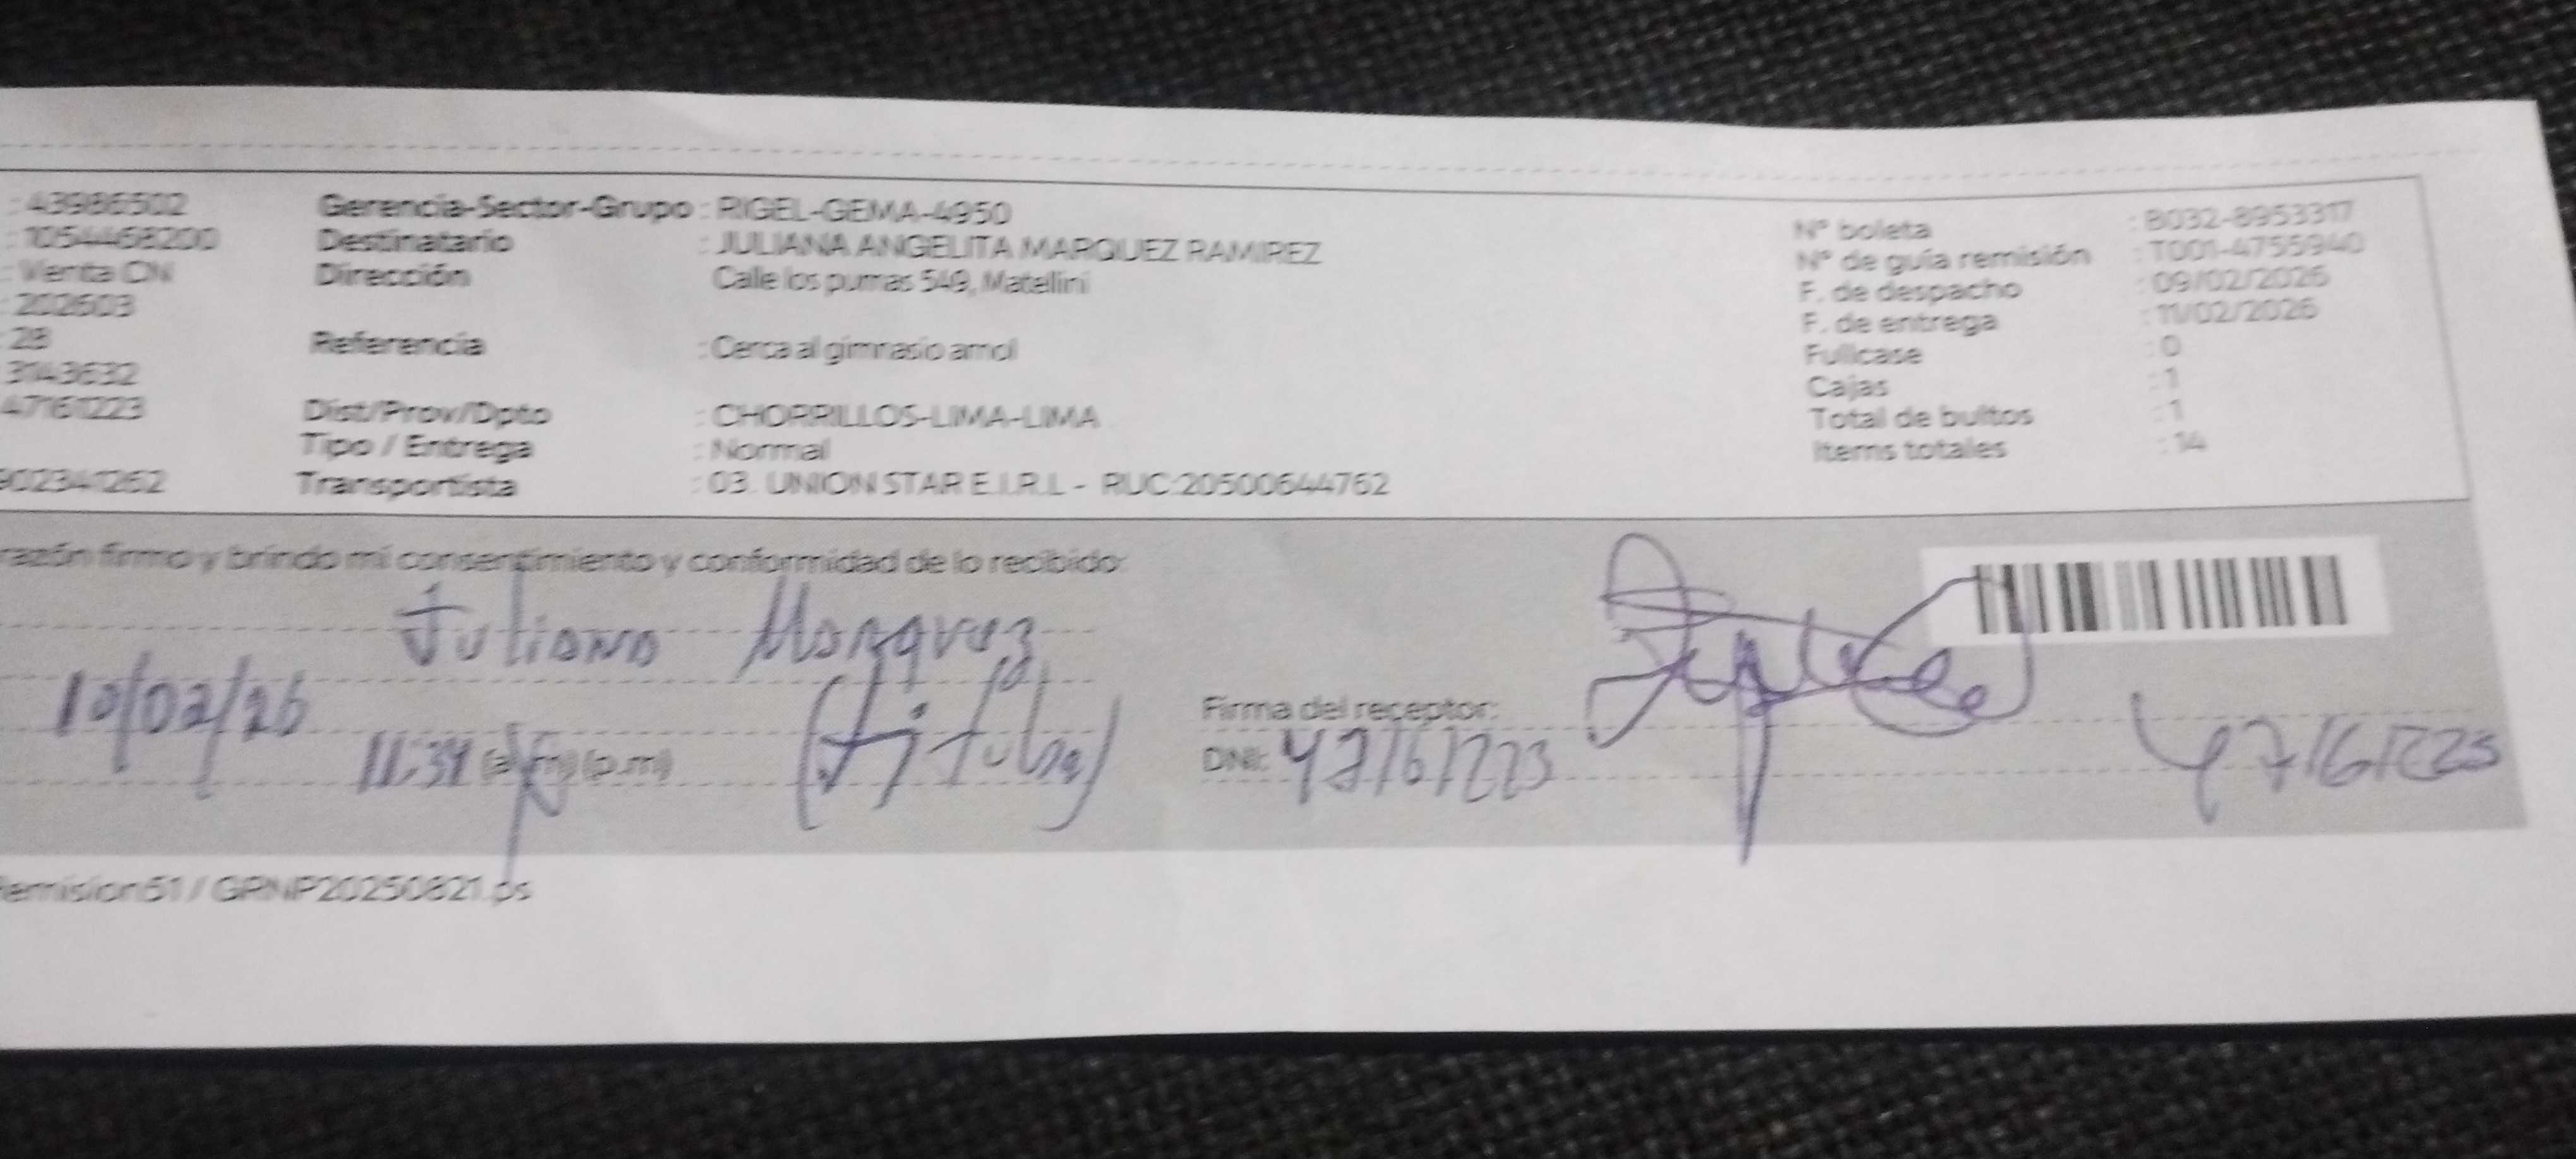 : 43986502 Gerencia-Sector-Grupo : RIGEL-GEMA-4950 N° boleta : B032-8953317
: 1054468200 Destinatario : JULIANA ANGELITA MARQUEZ RAMIREZ N° de guía remisión : T001-4755940
: Venta CN Dirección Calle los pumas 549, Matellini F. de despacho : 09/02/2026
: 202603 F. de entrega : 11/02/2026
: 28 Referencia : Cerca al gimnasio amol Fullcase : 0
3143632 Cajas : 1
47161223 Dist/Prov/Dpto : CHORRILLOS-LIMA-LIMA Total de bultos : 1
Tipo / Entrega : Normal Items totales : 14
902341262 Transportista : 03. UNION STAR E.I.R.L - RUC:20500644762
razón firmo y brindo mi consentimiento y conformidad de lo recibido:
Juliana Marquez
10/02/26 11:34 (a.m) (p.m) (titular) Firma del receptor:
DNI: 47161223 47161223
Remision61 / GRNP20250821.ps